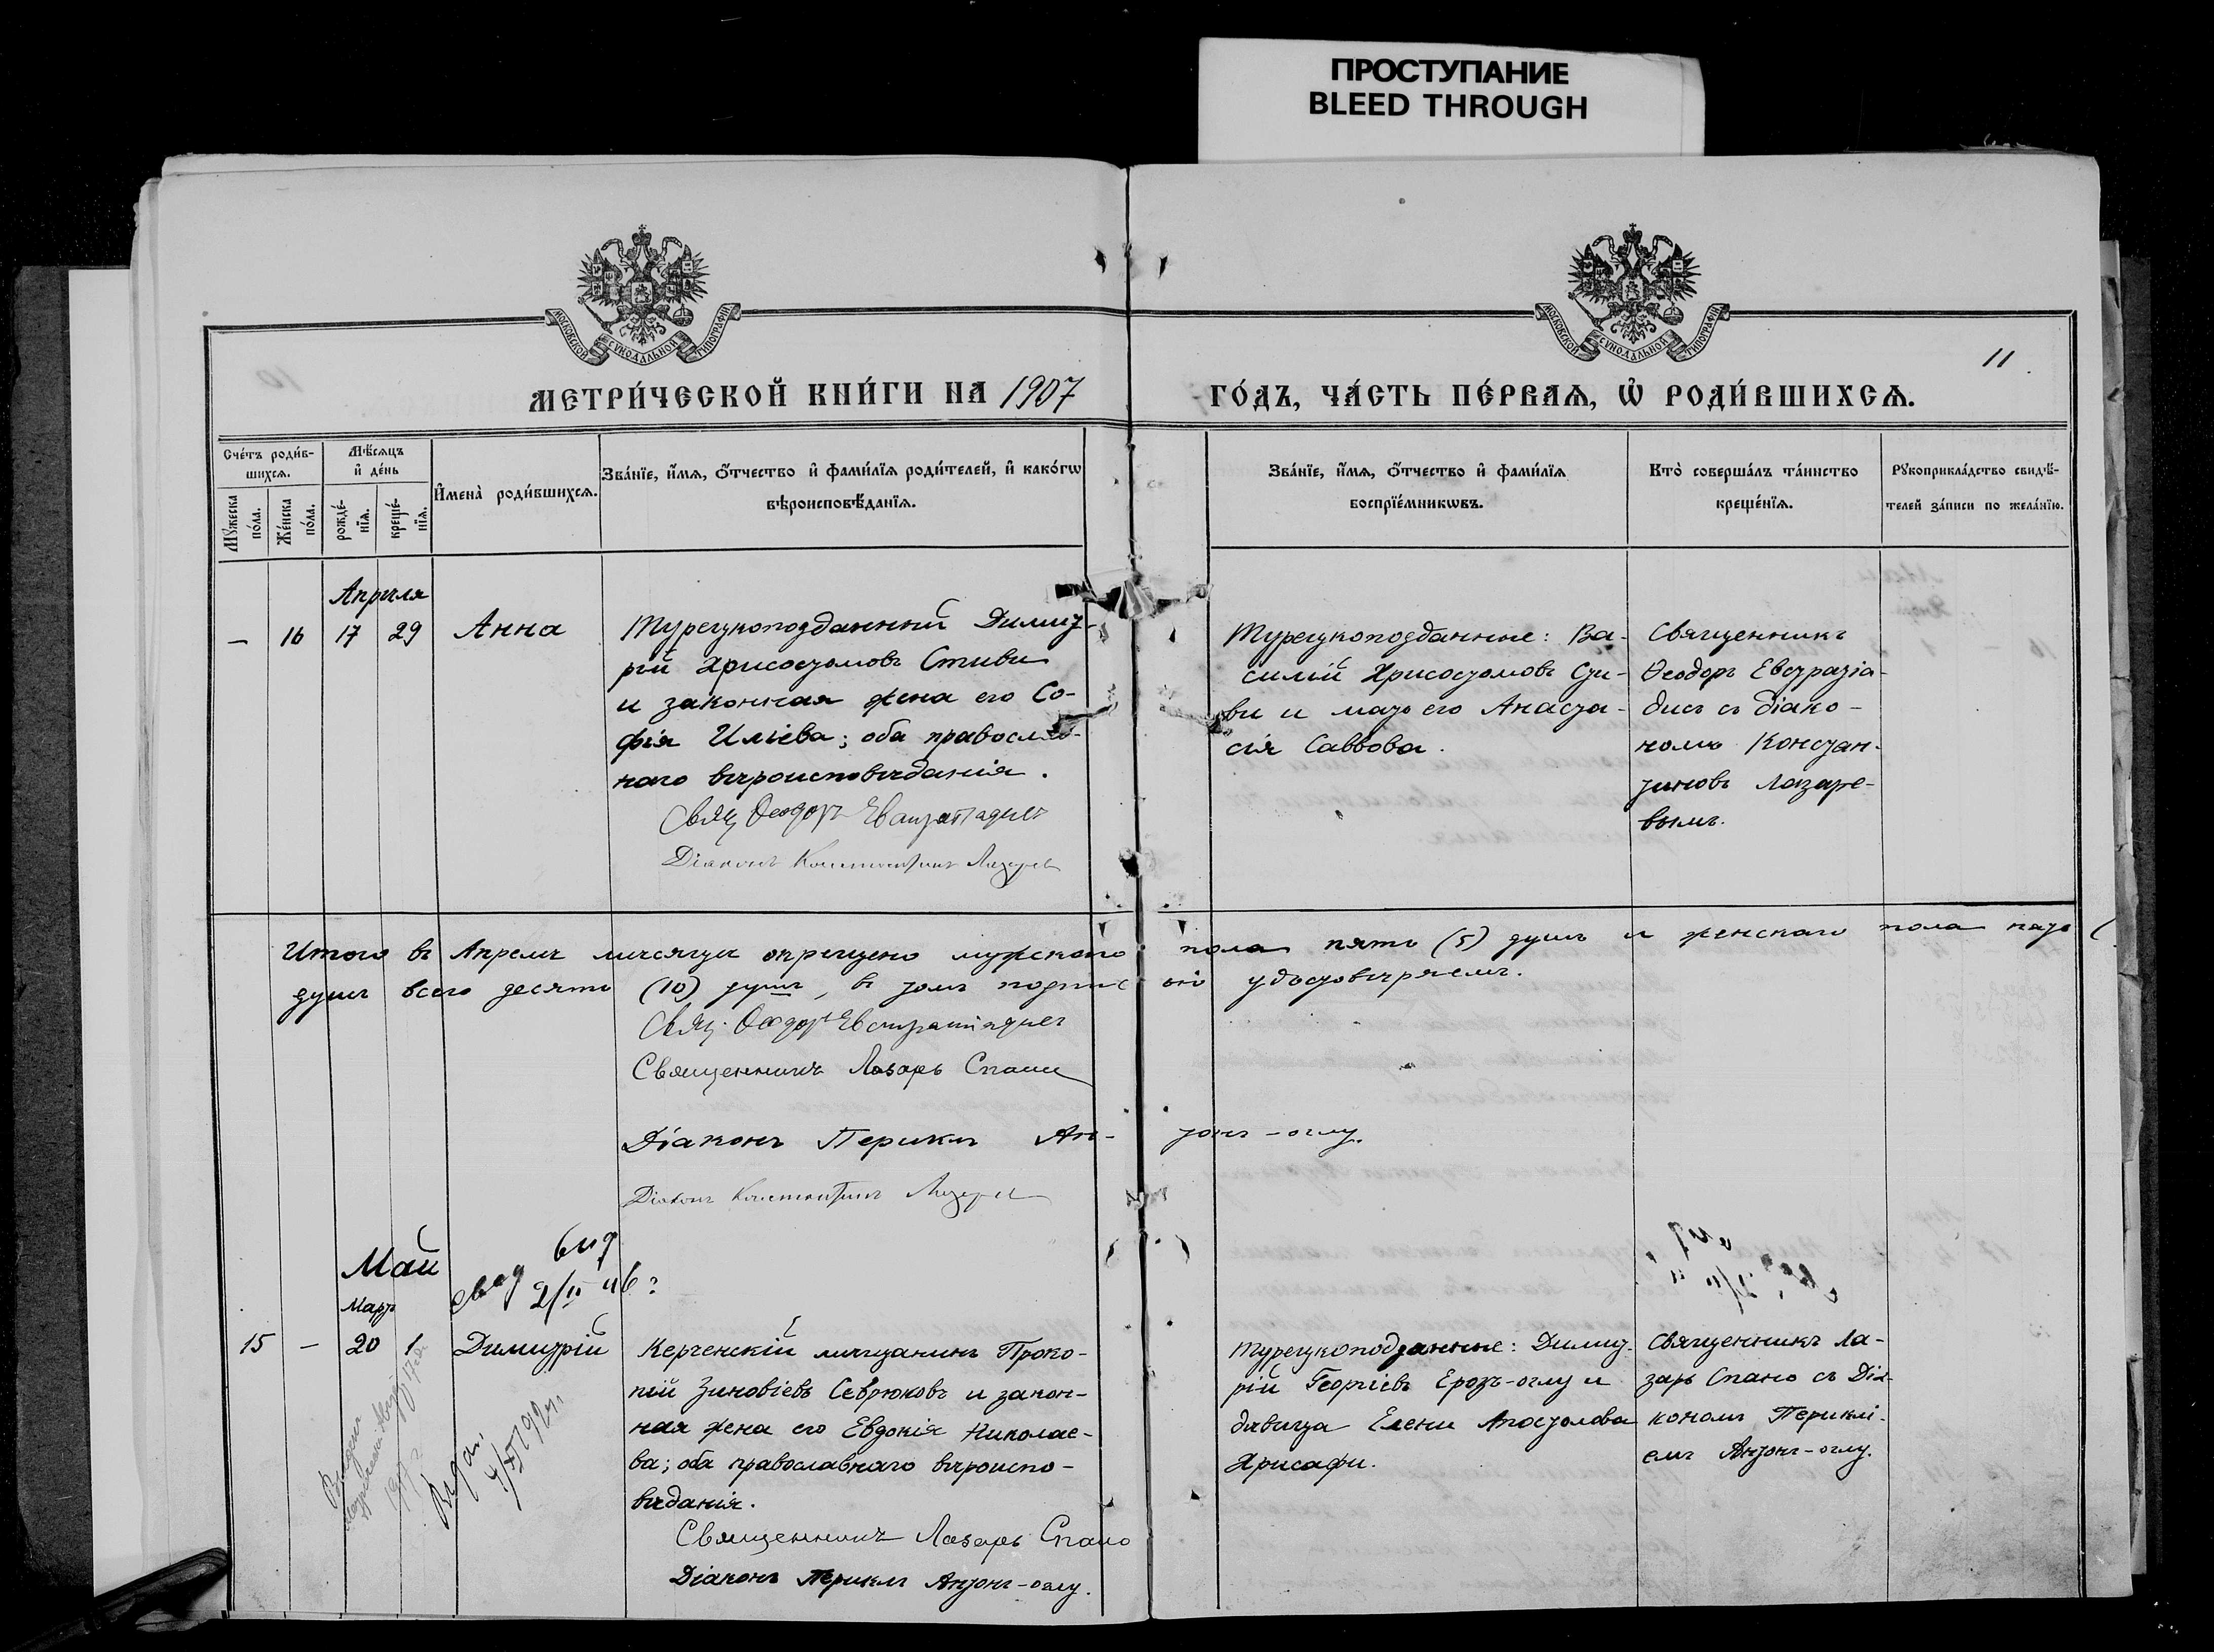 ПРОСТУПАНИЕ
BLEED THROUGH
МОСКОВСКОЙ СѴНОДАЛЬНОЙ ТИПОГРАФІИ
МОСКОВСКОЙ СѴНОДАЛЬНОЙ ТИПОГРАФІИ
11
МЕТРИ́ЧЕСКОЙ КНИ́ГИ НА 1907 ГО́ДЪ, ЧА́СТЬ ПЕ́РВАѦ, Ѡ҆ РОДИ́ВШИХСѦ.
Сче́тъ роди́в-
шихсѧ.
Мѣ́сѧцъ
и҆ де́нь
Мꙋ́жеска
по́ла.
Же́нска
по́ла.
рожде́-
нїѧ.
креще́-
нїѧ.
И҆мена̀ роди́вшихсѧ.
Зва́нїе, и҆́мѧ, ѻ҆́тчество и҆ фами́лїѧ роди́телей, и҆ како́гѡ
вѣроисповѣ́данїѧ.
Зва́нїе, и҆́мѧ, ѻ҆́тчество и҆ фами́лїѧ
воспрїе́мникѡвъ.
Кто̀ соверша́лъ та́инство
креще́нїѧ.
Рꙋкоприкла́дство свидѣ́-
телей за́писи по жела́нїю.
Апрѣля
— 16 17 29 Анна
Турецкоподданный Димит-
рій Хрисостомовъ Стиви
и законная жена его Со-
фія Ильева; оба православ-
наго вѣроисповѣданія.
Свящ Ѳеодоръ Евстратіадисъ
Діаконъ Константинъ Лазаревъ
Турецкоподданные: Ва-
силій Хрисостомовъ Сти-
ви и мать его Анаста-
сія Саввова.
Священникъ
Ѳеодоръ Евстратіа-
дисъ съ діако-
номъ Констан-
тиновъ Лазаре-
вымъ.
Итого въ Апрѣлѣ мѣсяцѣ окрещено мужского пола пять (5) душъ и женскаго пола пять (
душъ всего десять (10) душъ, въ томъ подписью удостовѣряемъ.
Свящ. Ѳеодоръ Евстратіадисъ
Священникъ Лазарь Спано
Діаконъ Периклъ Ан- тонъ-оглу.
Діаконъ Константинъ Лазаревъ
Май
Март
15 — 20 1 Димитрій
Керченскій мѣщанинъ Проко-
пій Зиновіевъ Севрюковъ и закон-
ная жена его Евдокія Николае-
ва; оба православнаго вѣроиспо-
вѣданія.
Священникъ Лазарь Спано
Діаконъ Периклъ Антонъ-оглу.
Турецкоподданные: Димит-
рій Георгіевъ Ерозъ-оглу и
дѣвица Елени Апостолова
Хрисафи.
Священникъ Ла-
зарь Спано съ Діа-
кономъ Перикл-
емъ Антонъ-оглу.